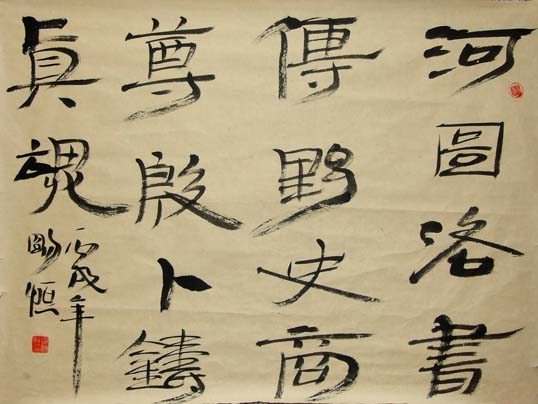 河圖洛書
傳野史商
尊殷卜鑄
真魂
丙戌年